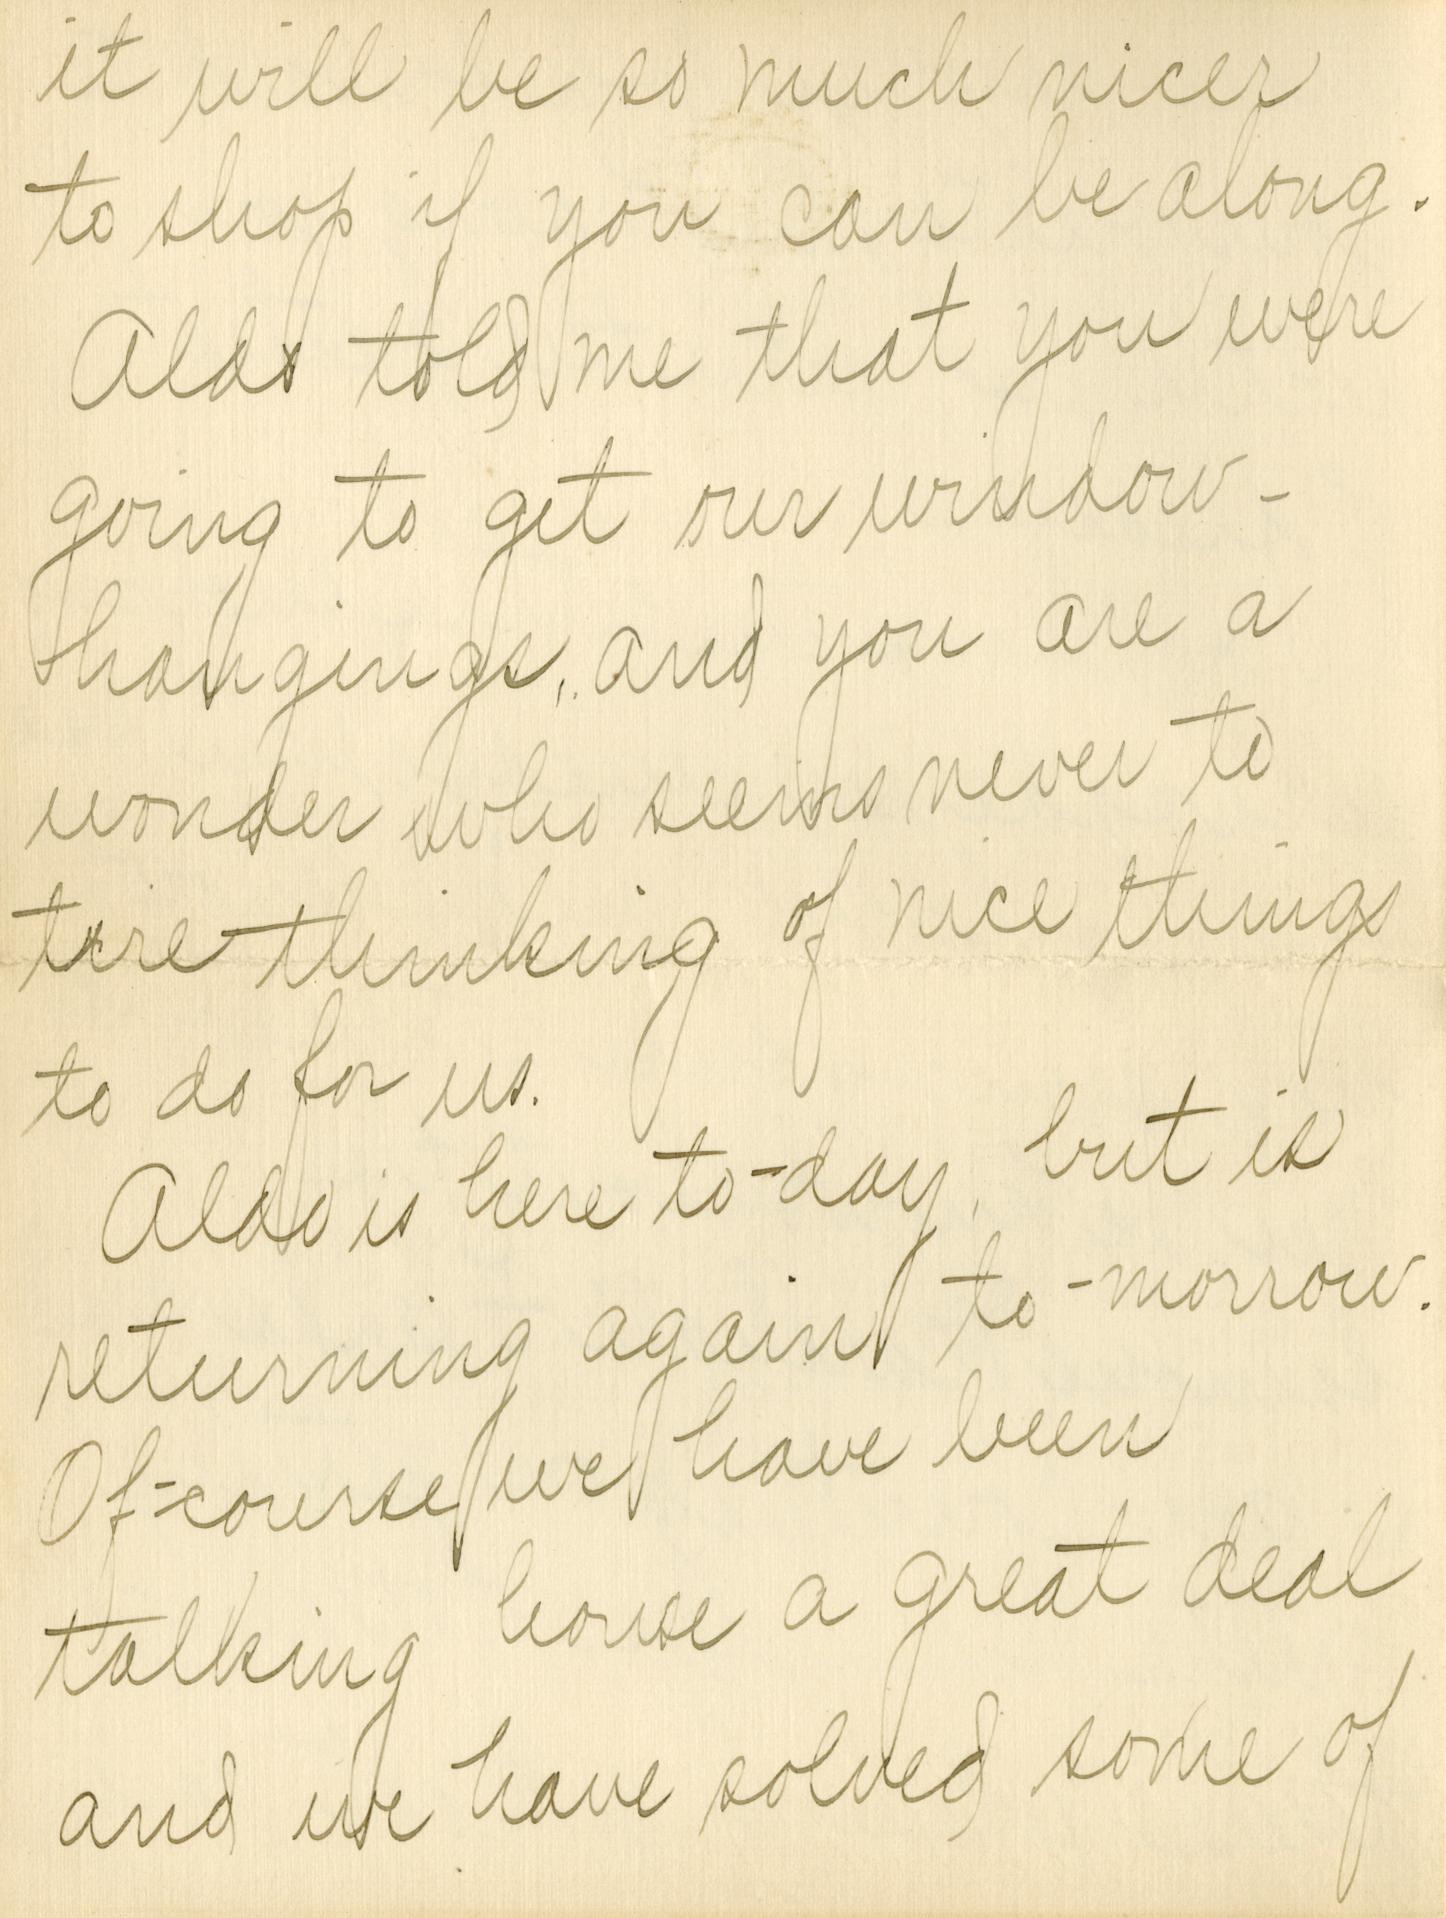 it will be so much nicer
to shop if you can be along.
Aldo told me that you were
going to get our window-
hangings, and you are a
wonder who seems never to
tire thinking of nice things
to do for us.
Aldo is here to-day, but is
returning again to-morrow.
Of-course we have been
talking house a great deal
and we have solved some of